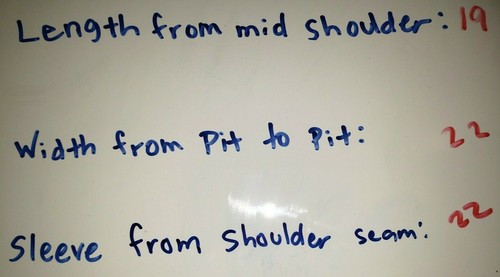 Length from mid shoulder: 19
Width from Pit to Pit: 22
Sleeve from shoulder seam: 22